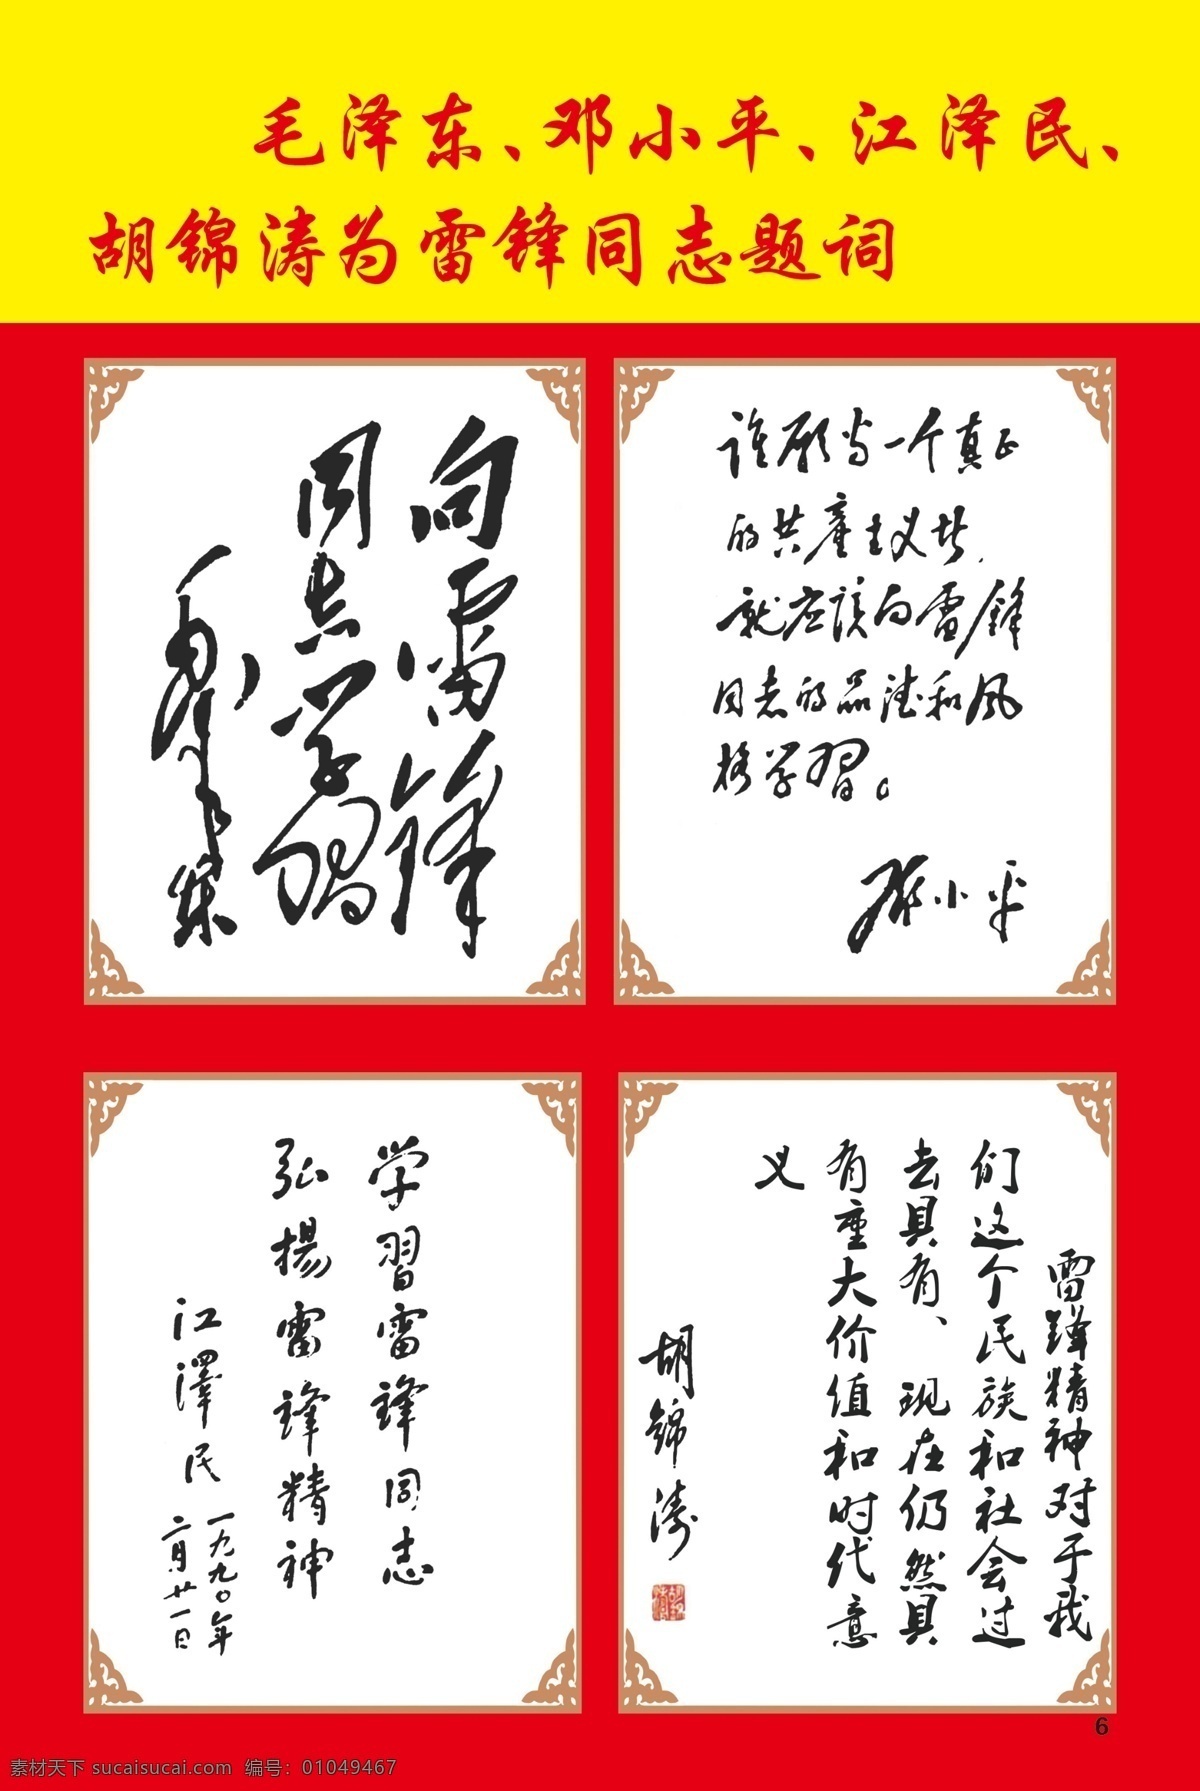 毛泽东、邓小平、江泽民、
胡锦涛为雷锋同志题词
向雷锋
同志学习
毛泽东
谁愿当一个真正
的共产主义者，
就应该向雷锋
同志的品德和风
格学习。
邓小平
学習雷锋同志
弘揚雷锋精神
江澤民
一九九〇年
二月廿一日
雷锋精神对于我
们这个民族和社会过
去具有、现在仍然具
有重大价值和时代意
义
胡锦涛
6
素材天下 sucaisucai.com 编号：01049467